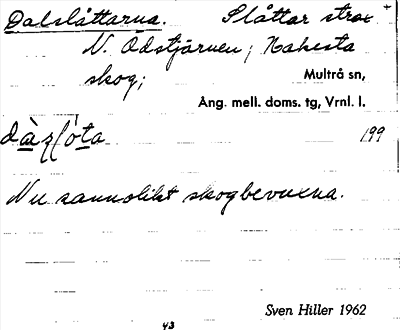 Dalslåttarna. Slåttar strax
N. Ödstjärnen; Nakesta
skog; Multrå sn,
Ång. mell. doms. tg, Vrnl. l.
199
Nu sannolikt skogbevuxna.
Sven Hiller 1962
43